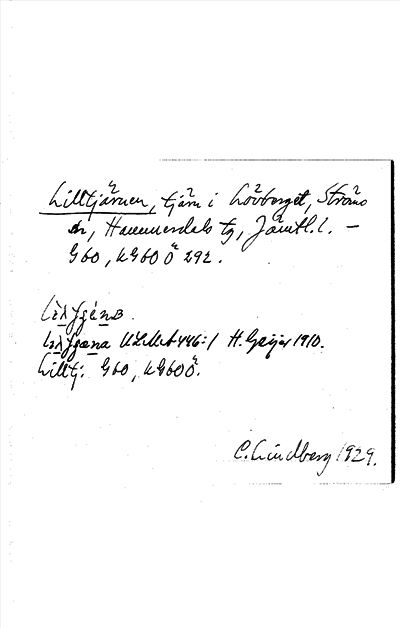 Lilltjärnen, tjärn i Lövberget, Ströms
sn, Hammerdals tg, Jämtl. l. –
G 60, KG 60 Ö 292.
ULMA 446:1 H. Geijer 1910.
Lilltj: G 60, KG 60 Ö.
C. Lindberg 1929.